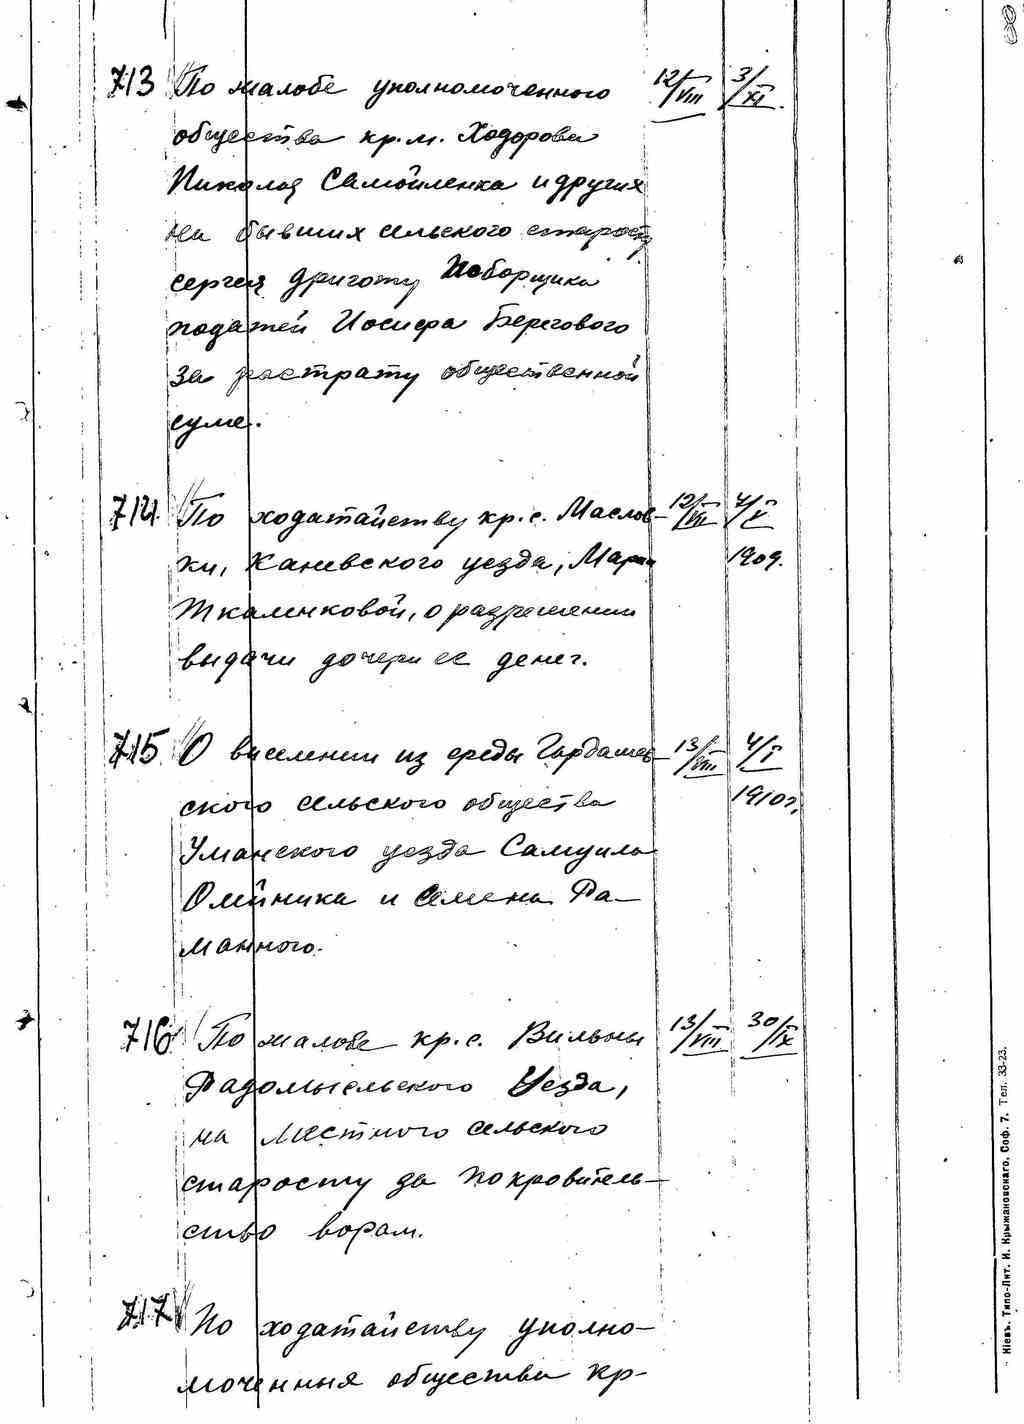 713 По жалобе уполномоченного 12/VIII 3/XI.
общества кр. м. Ходорова
Николая Самойленка и других
на бывших сельского старосту
Сергея Дриготу и сборщика
податей Иосифа Берегового
за растрату общественной
суме.
714. По ходатайству кр. с. Маслов- 12/VIII 4/V
ки, Каневского уезда, Марии 1909.
Ткаленковой, о разрешении
выдачи дочери ее денег.
715 О виселении из среды Гордашев- 13/VIII 4/I
ского сельского общества 1910г.
Уманского уезда Самуила
Олийника и Семена Ра-
манного.
716 По жалобе кр. с. Вильны 13/VIII 30/IX
Радомысльского Уезда,
на местного сельского
старосту за покровитель-
ство ворам.
717 По ходатайству уполно-
моченния общества кр-
Кіевъ. Типо-Лит. И. Крыжановскаго. Соф. 7. Тел. 33-23.